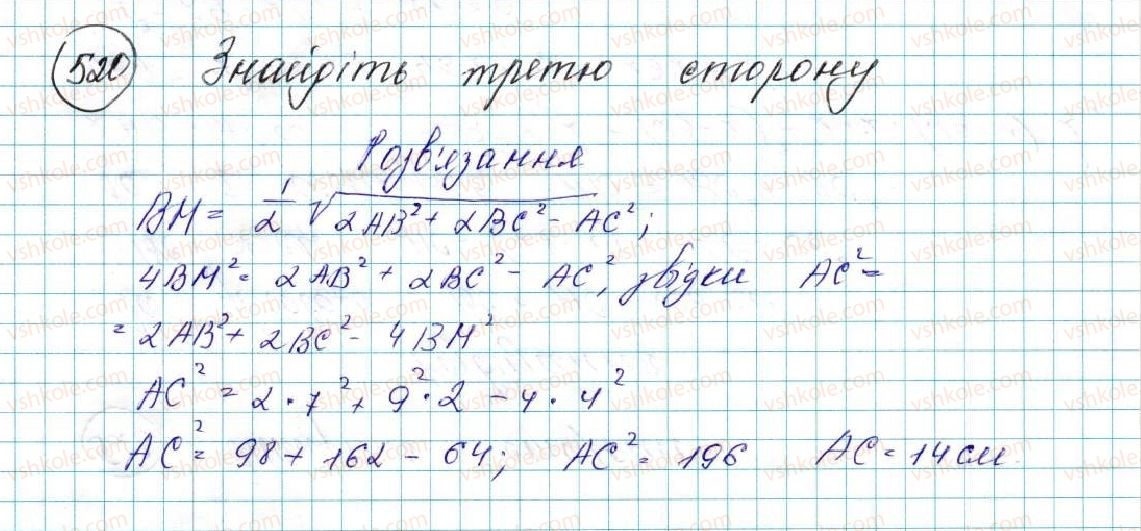 520 Знайдіть третю сторону
Розв'язання
BM = 1/2 √(2AB² + 2BC² - AC²);
4BM² = 2AB² + 2BC² - AC², звідки AC² =
= 2AB² + 2BC² - 4BM²
AC² = 2 · 7² + 9² · 2 - 4 · 4²
AC² = 98 + 162 - 64; AC² = 196 AC = 14 см